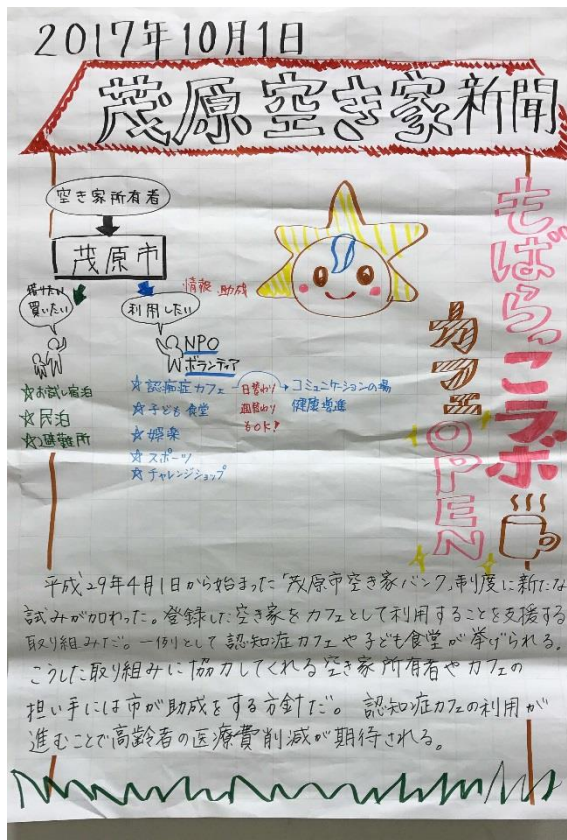 2017年10月1日
茂原空き家新聞
もばらっこラボ
場フェOPEN
空き家所有者
茂原市
借りたい
買いたい
利用したい
情報 助成
NPO
ボランティア
☆お試し宿泊
☆民泊
☆避難所
☆認知症カフェ
☆子ども食堂
☆娯楽
☆スポーツ
☆チャレンジショップ
日替わり
週替わり
もOK!
コミュニケーションの場
健康増進
平成29年4月1日から始まった「茂原市空き家バンク」制度に新たな
試みが加わった。登録した空き家をカフェとして利用することを支援する
取り組みだ。一例として認知症カフェや子ども食堂が挙げられる。
こうした取り組みに協力してくれる空き家所有者やカフェの
担い手には市が助成をする方針だ。認知症カフェの利用が
進むことで高齢者の医療費削減が期待される。